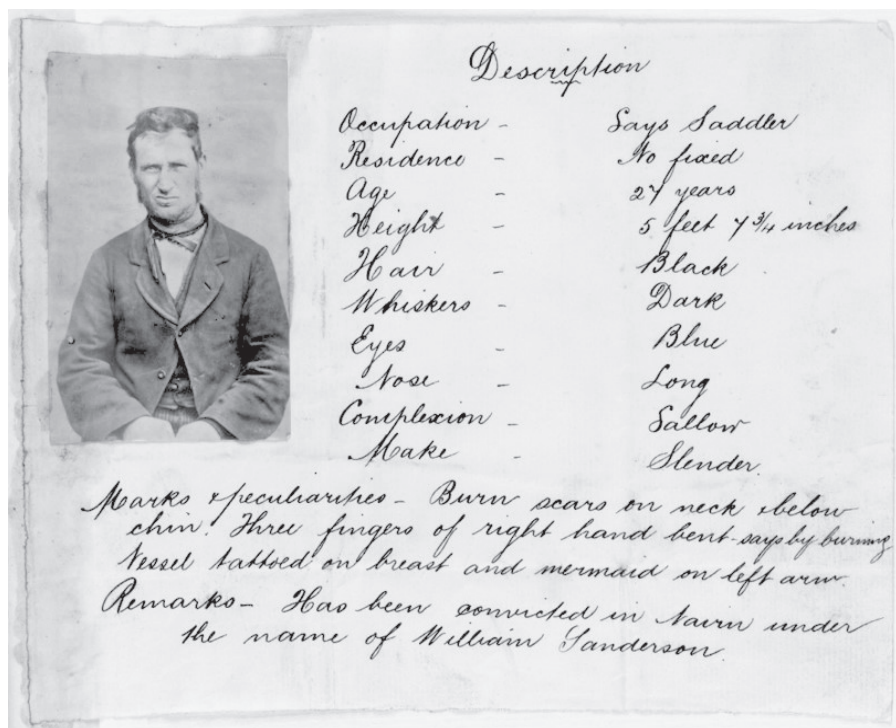 Description
Occupation - Says Saddler
Residence - No fixed
Age - 27 years
Height - 5 feet 7 3/4 inches
Hair - Black
Whiskers - Dark
Eyes - Blue
Nose - Long
Complexion - Sallow
Make - Slender.
Marks & peculiarities - Burn scars on neck & below
chin. Three fingers of right hand bent - says by burning
Vessel tattoed on breast and mermaid on left arm.
Remarks - Has been convicted in Nairn under
the name of William Sanderson.